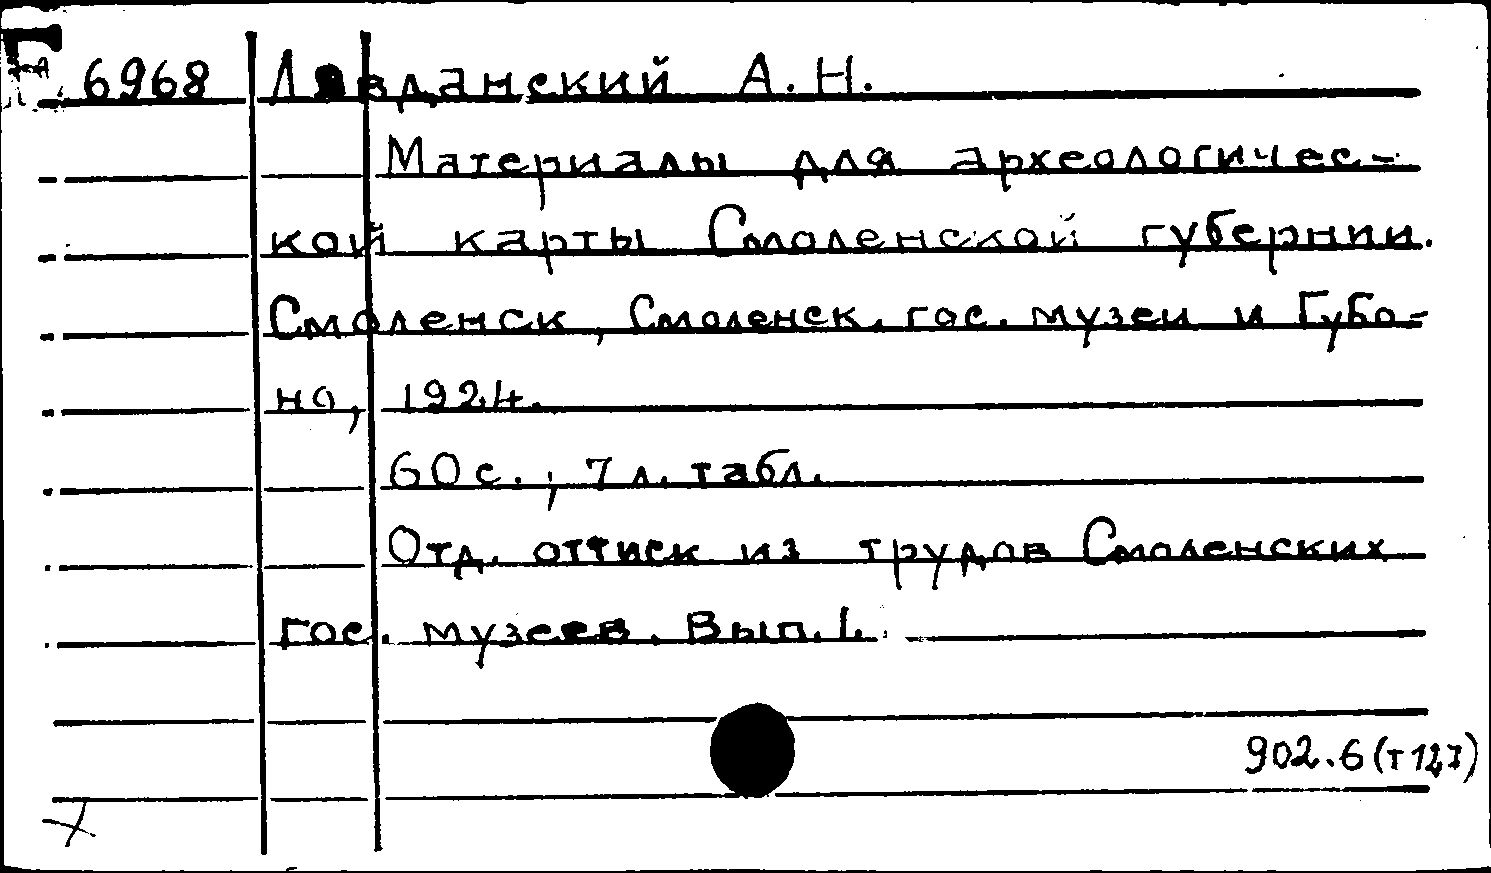 Г 6968 Лявданский А.Н.
Материалы для археологичес-
кой карты Смоленской губернии.
Смоленск, Смоленск. гос. музеи и Губо-
но, 1924.
60 с.; 7 л. табл.
Отд. оттиск из трудов Смоленских
гос. музеев. Вып. 1.
902.6 (Т127)